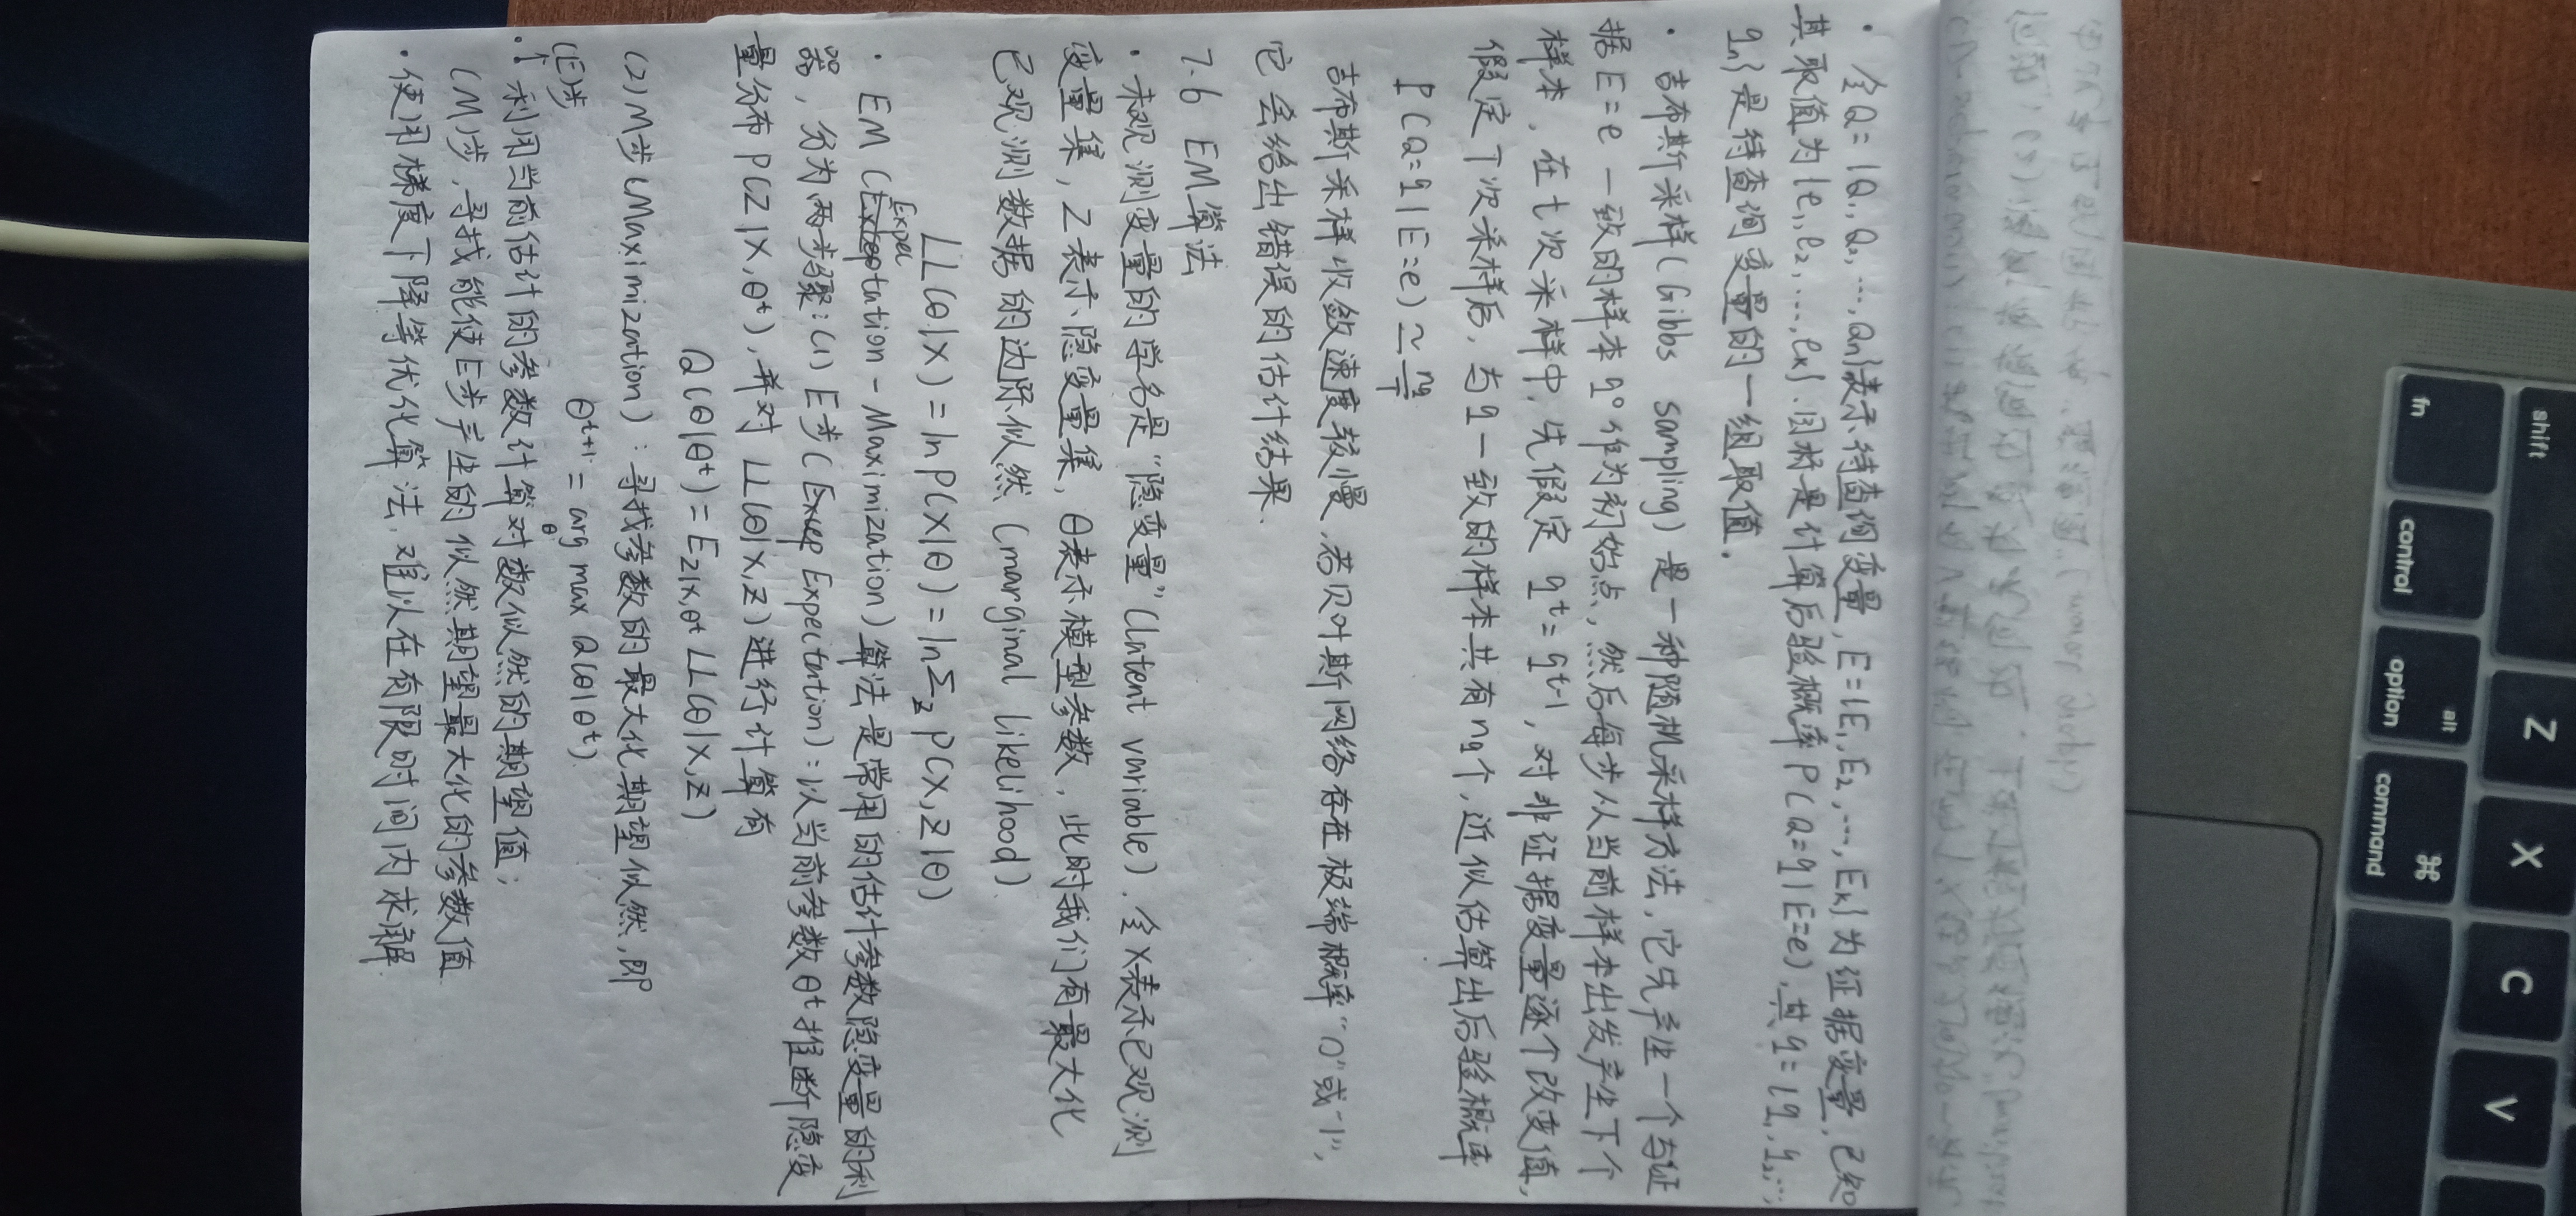 · 令Q={Q₁,Q₂,…,Qn}表示待查询变量,E={E₁,E₂,…,Ek}为证据变量,已知
其取值为{e₁,e₂,…,ek}.目标是计算后验概率P(Q=q|E=e),其q={q₁,q₂,…,
qn}是待查询变量的一组取值.
· 吉布斯采样(Gibbs sampling)是一种随机采样方法,它先产生一个与证
据E=e一致的样本q⁰作为初始点,然后每步从当前样本出发产生下个
样本.在t次采样中,先假定qᵗ=qᵗ⁻¹,对非证据变量逐个改变值,
假定T次采样后,与q一致的样本共有nq个,近似估算出后验概率
P(Q=q|E=e)≃nq/T
吉布斯采样收敛速度较慢,若贝叶斯网络存在极端概率“0”或“1”,
它会给出错误的估计结果.
7.6 EM算法
· 未观测变量的学名是“隐变量”(latent variable).令X表示已观测
变量集,Z表示隐变量集,θ表示模型参数.此时我们有最大化
已观测数据的边际似然(marginal likelihood)
LL(θ|X)=lnP(X|θ)=lnΣz P(X,Z|θ)
· EM(Expectation-Maximization)算法是常用的估计参数隐变量的利
器,分为两步骤:(1)E步(Expectation):以当前参数θᵗ推断隐变
量分布P(Z|X,θᵗ),并对LL(θ|X,Z)进行计算有
Q(θ|θᵗ)=E_{Z|X,θᵗ} LL(θ|X,Z)
(2)M步(Maximization):寻找参数的最大化期望似然,即
θᵗ⁺¹=arg max_θ Q(θ|θᵗ)
(E)步
· 利用当前估计的参数计算对数似然的期望值;
(M)步,寻找能使E步产生的似然期望最大化的参数值
· 使用梯度下降等优化算法,难以在有限时间内求解.
shift
fn
control
alt
option
⌘
command
Z
X
C
V